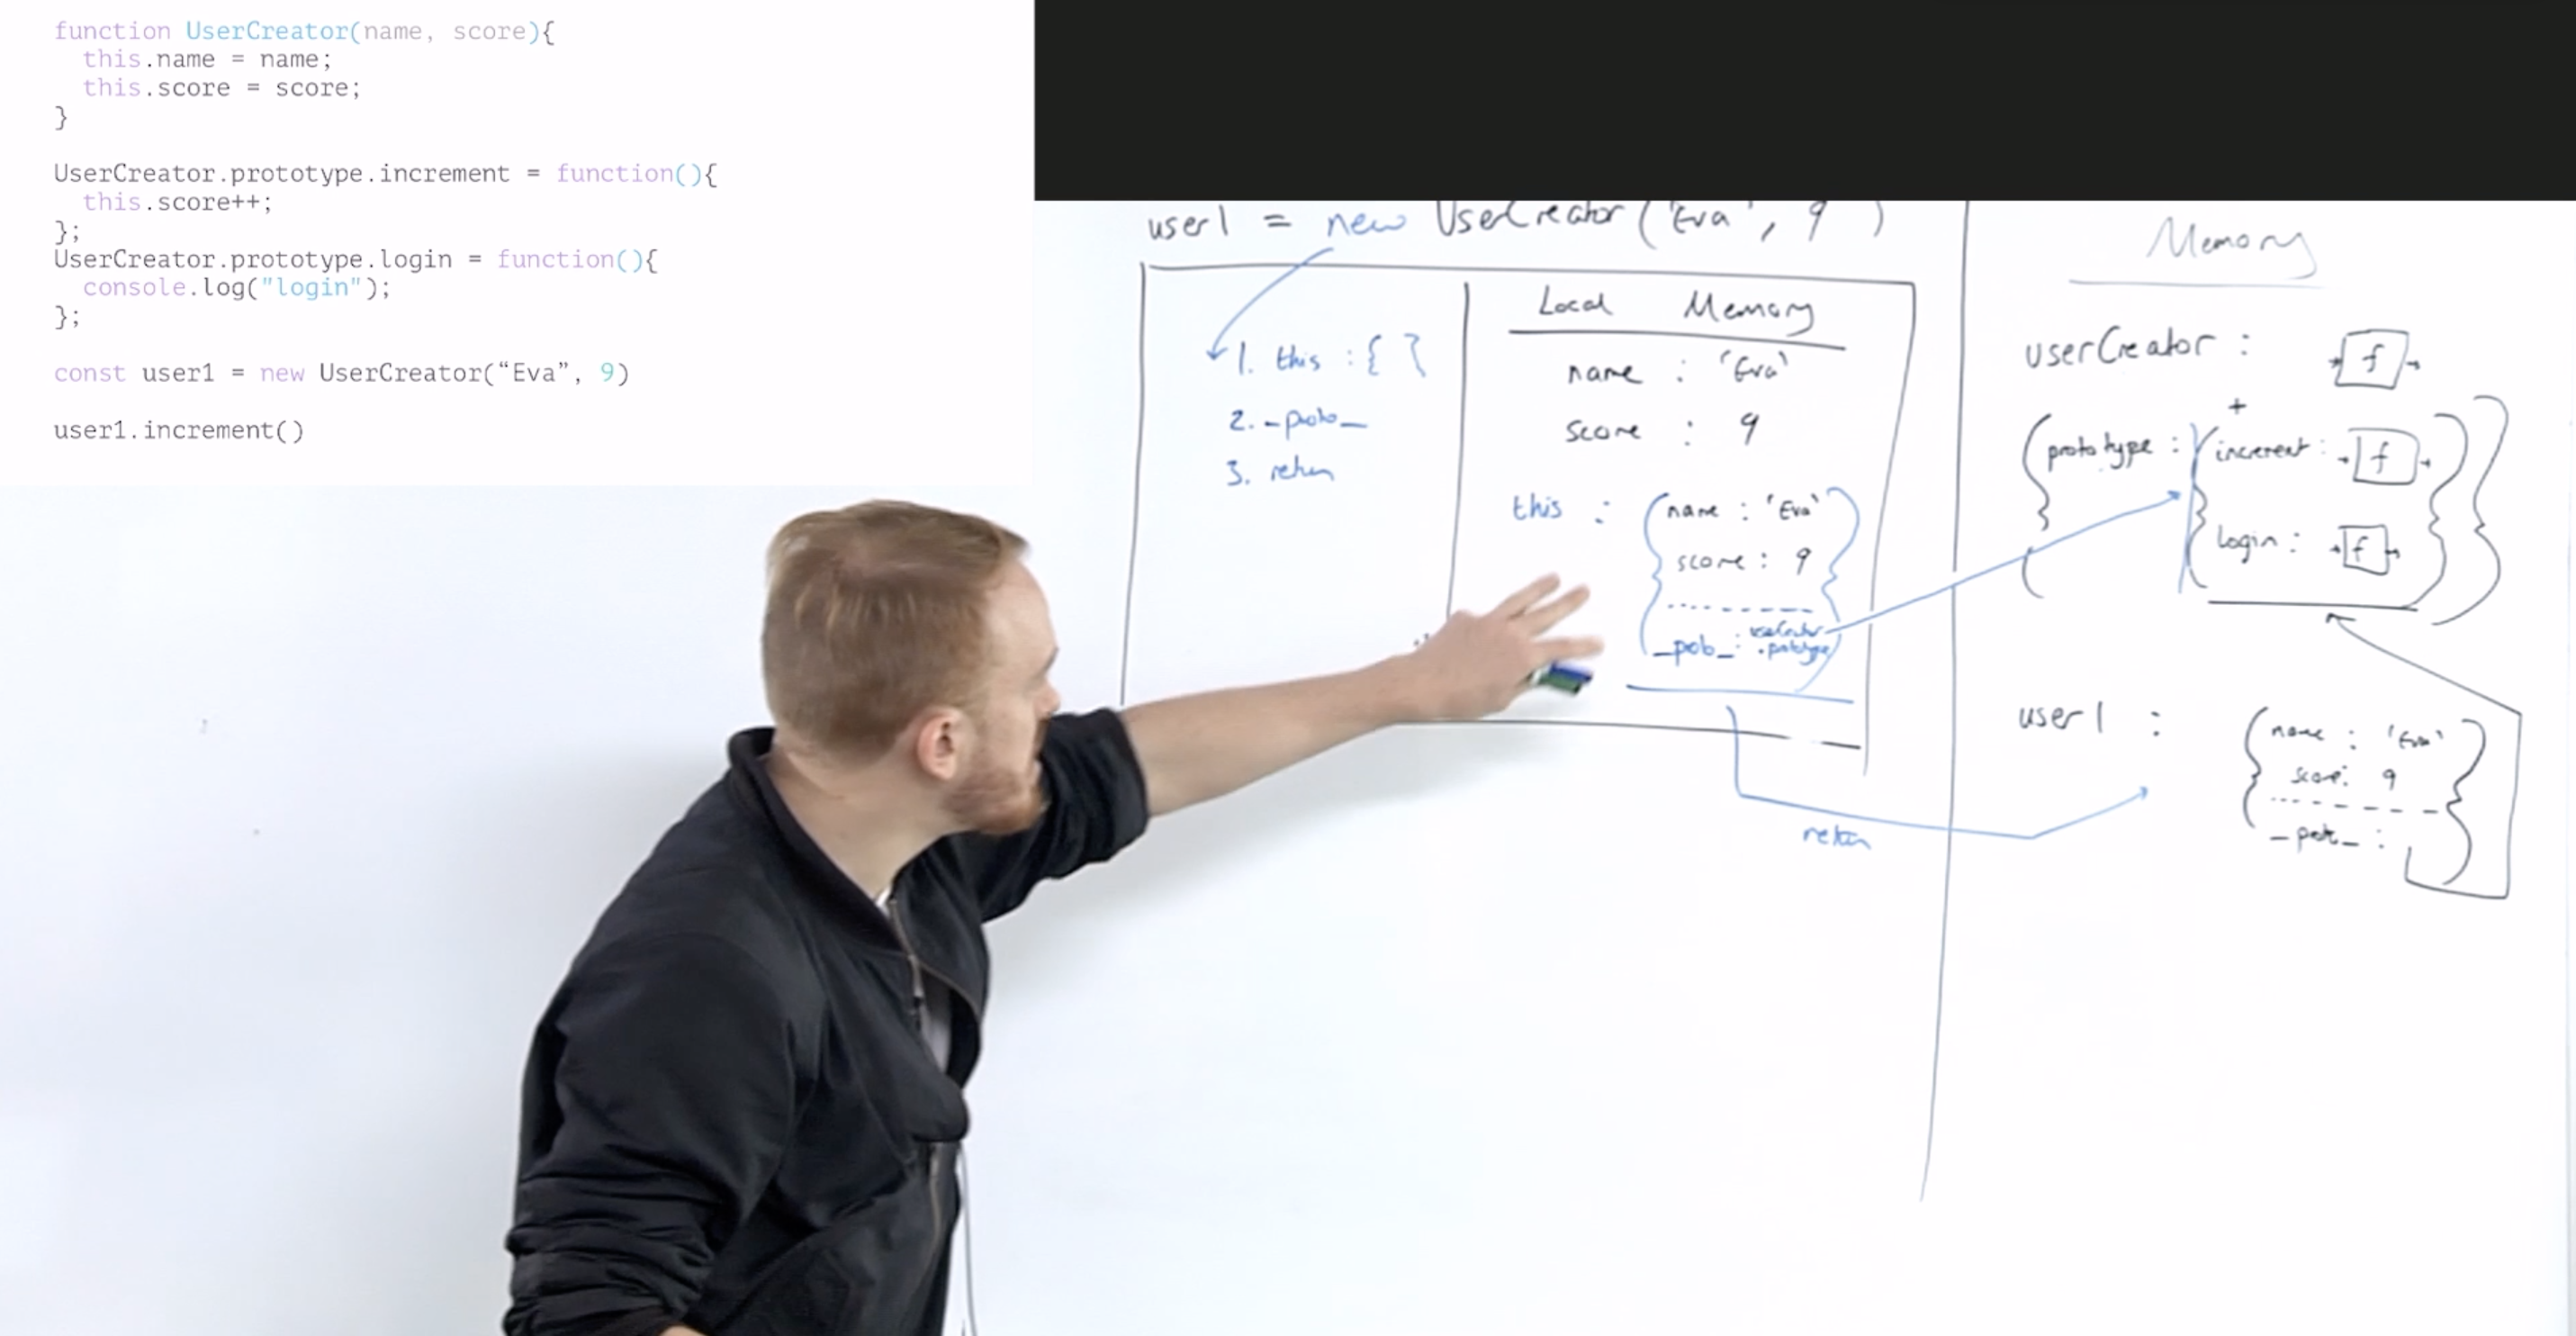 function UserCreator(name, score){
this.name = name;
this.score = score;
}
UserCreator.prototype.increment = function(){
this.score++;
};
UserCreator.prototype.login = function(){
console.log("login");
};
const user1 = new UserCreator(“Eva”, 9)
user1.increment()
user1 = new UserCreator('Eva', 9)
1. this : { }
2. _proto_
3. return
Local Memory
name : 'Eva'
score : 9
this : { name : 'Eva'
score : 9
_proto_ : userCreator
.prototype }
return
Memory
userCreator : f
+
{ prototype : { increment : f
login : f } }
user1 : { name : 'Eva'
score : 9
_proto_ : }